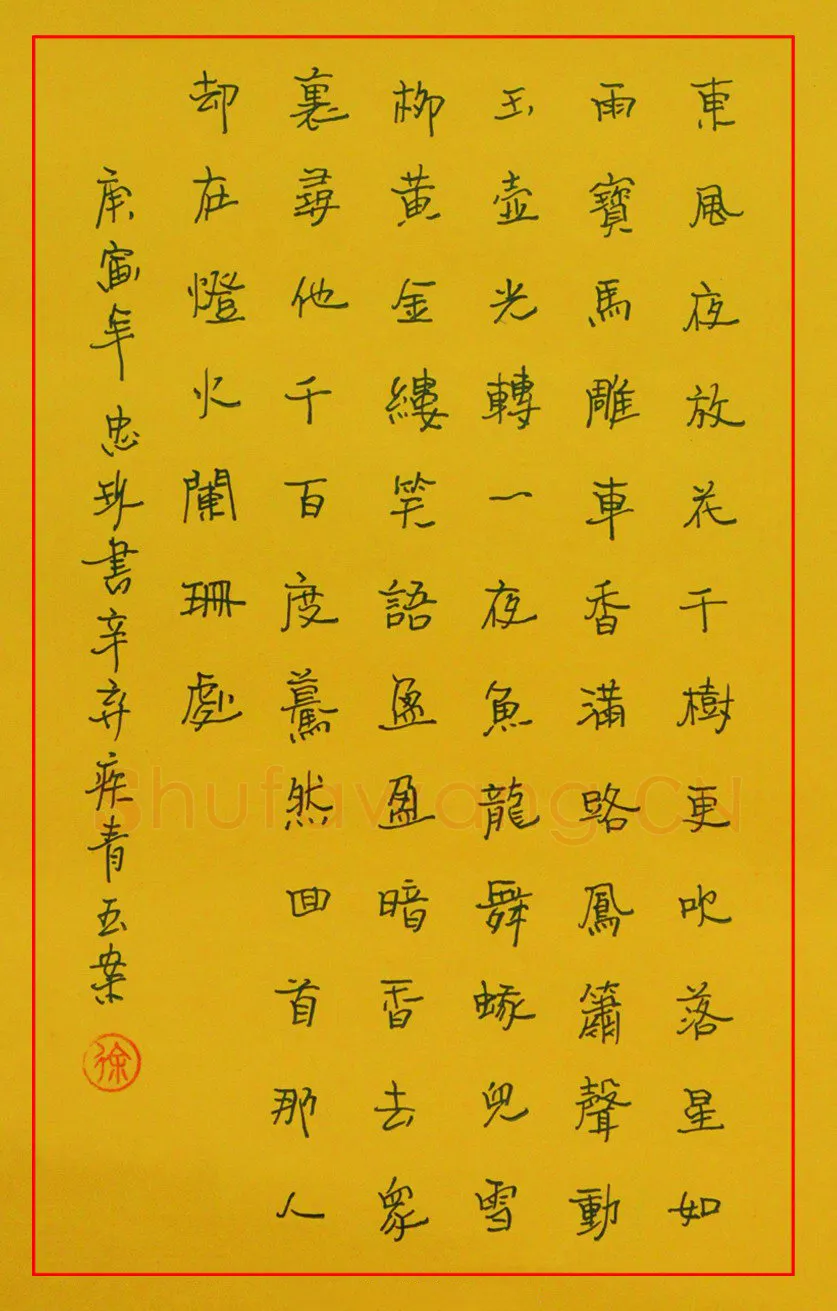 東風夜放花千樹更吹落星如
雨寶馬雕車香滿路鳳簫聲動
玉壺光轉一夜魚龍舞蛾兒雪
柳黃金縷笑語盈盈暗香去衆
裏尋他千百度驀然回首那人
却在燈火闌珊處
庚寅年忠珍書辛弃疾青玉案
徐
Shufawang.CN